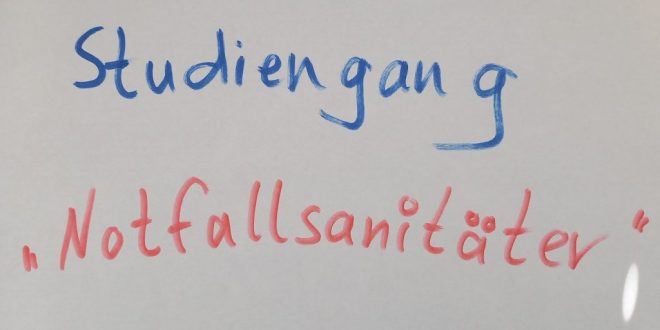 Studiengang
„Notfallsanitäter“